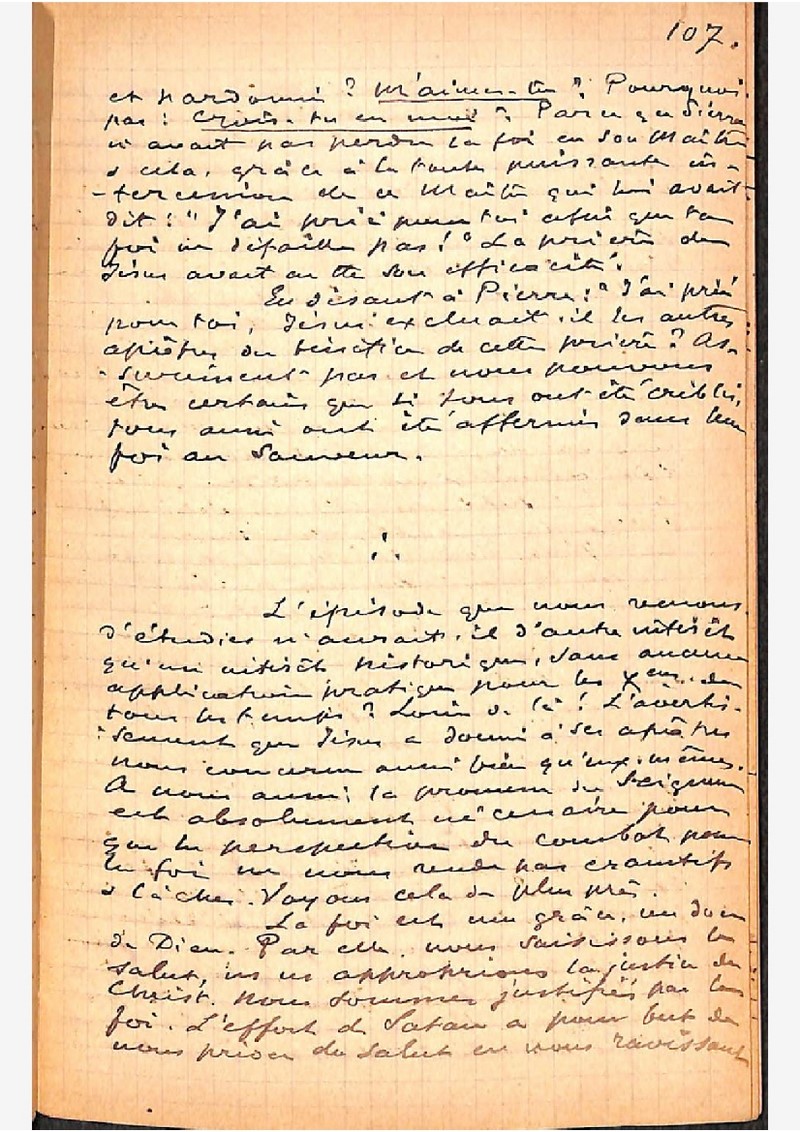 107.
et pardonné ? M'aimes-tu ? Pourquoi
pas : Crois-tu en moi ? Parce que Pierre
n'avait pas perdu la foi en son Maître
& cela, grâce à la toute puissante in-
-tercession de ce Maître qui lui avait
dit : " J'ai prié pour toi afin que ta
foi ne défaille pas ! " La prière de
Jésus avait eu tte son efficacité.
En disant à Pierre : " J'ai prié
pour toi, Jésus excluait-il les autres
apôtres du bénéfice de cette prière ? As-
-surément pas et nous pouvons
être certains que si tous ont été criblés,
tous aussi ont été affermis dans leur
foi au Sauveur.
∴
L'épisode que nous venons
d'étudier n'aurait-il d'autre intérêt
qu'un intérêt historique, sans aucune
application pratique pour les Xens de
tous les temps ? Loin de là ! L'avertis-
-sement que Jésus a donné à ses apôtres
nous concerne aussi bien qu'eux-mêmes.
A nous aussi, la promesse du Seigneur
est absolument nécessaire pour
que la perspective du combat pour
la foi ne nous rende pas craintifs
& lâches. Voyons cela de plus près.
La foi est une grâce, un don
de Dieu. Par elle, nous saisissons le
salut, ns ns approprions la justice du
Christ. Nous sommes justifiés par la
foi. L'effort de Satan a pour but de
nous priver du salut en nous ravissant